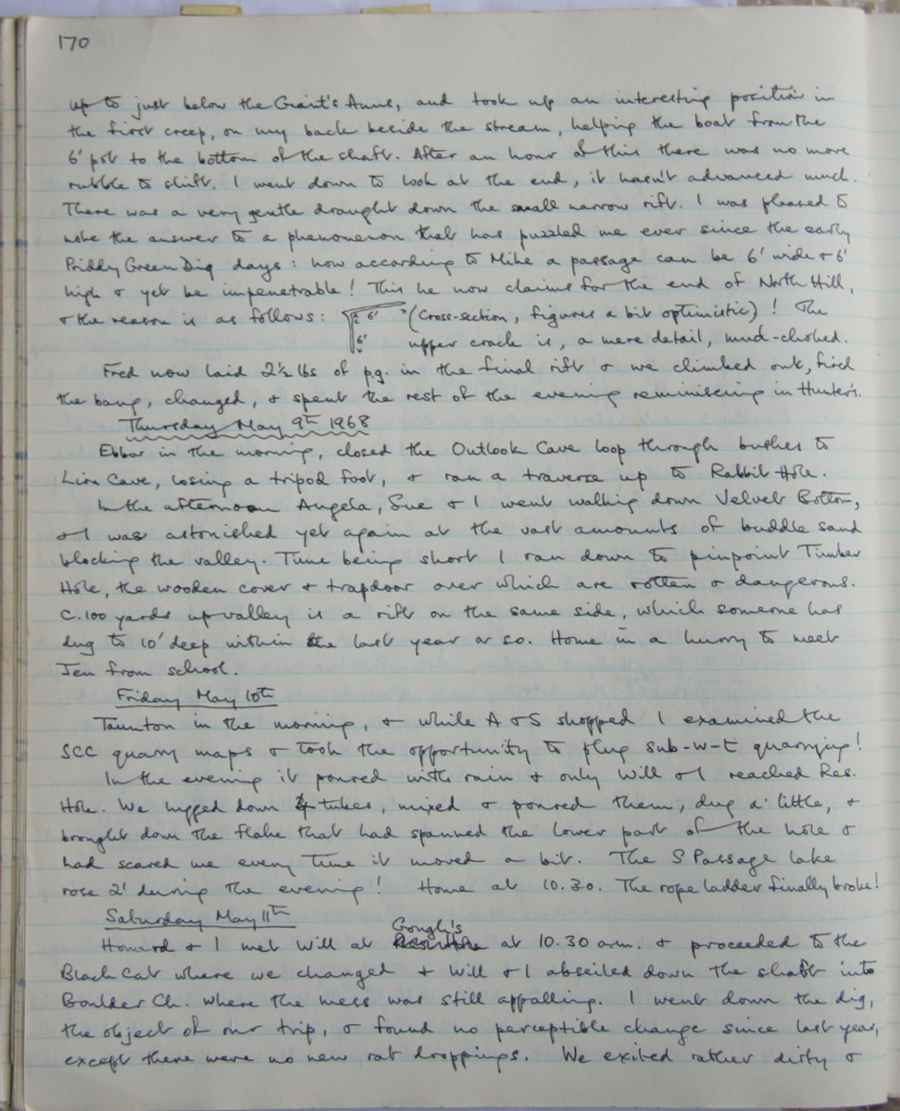 170
up to just below the Giant's Anus, and took up an interesting position in
the first creep, on my back beside the stream, helping the boat from the
6' pot to the bottom of the shaft. After an hour of this there was no more
rubble to shift. I went down to look at the end, it hasn't advanced much.
There was a very gentle draught down the small narrow rift. I was pleased to
note the answer to a phenomenon that has puzzled me ever since the early
Priddy Green Dig days: how according to Mike a passage can be 6' wide & 6'
high & yet be impenetrable! This he now claims for the end of North Hill,
& the reason is as follows: 6' (Cross-section, figures a bit optimistic)! The
6' upper crack is, a mere detail, mud-choked.
Fred now laid 2½ lbs of p.g. in the final rift & we climbed out, fired
the bang, changed, & spent the rest of the evening reminiscing in Hunter's.
Thursday May 9th 1968
Ebbor in the morning, closed the Outlook Cave loop through bushes to
Lion Cave, losing a tripod foot, & ran a traverse up to Rabbit Hole.
In the afternoon Angela, Sue & I went walking down Velvet Bottom,
& I was astonished yet again at the vast amounts of buddle sand
blocking the valley. Time being short I ran down to pinpoint Timber
Hole, the wooden cover & trapdoor over which are rotten & dangerous.
C.100 yards up valley is a rift on the same side, which someone has
dug to 10' deep within the last year or so. Home in a hurry to meet
Jen from school.
Friday May 10th
Taunton in the morning, & while A & S shopped I examined the
SCC quarry maps & took the opportunity to plug sub-w-t quarrying!
In the evening it poured with rain & only Will & I reached Res.
Hole. We lugged down 4 tubes, mixed & poured them, dug a little, &
brought down the flake that had spanned the lower part of the hole &
had scared me every time it moved a bit. The S Passage lake
rose 2' during the evening! Home at 10.30. The rope ladder finally broke!
Saturday May 11th
Howard & I met Will at Gough's at 10.30 a.m. & proceeded to the
Black Cat where we changed & Will & I abseiled down the shaft into
Boulder Ch. where the mess was still appalling. I went down the dig,
the object of our trip, & found no perceptible change since last year,
except there were no new rat droppings. We exited rather dirty &